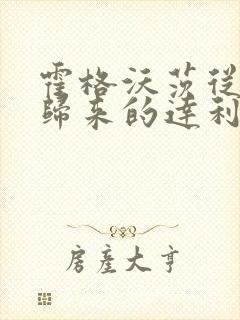 霍格沃茨從
歸來的達利
房產大亨